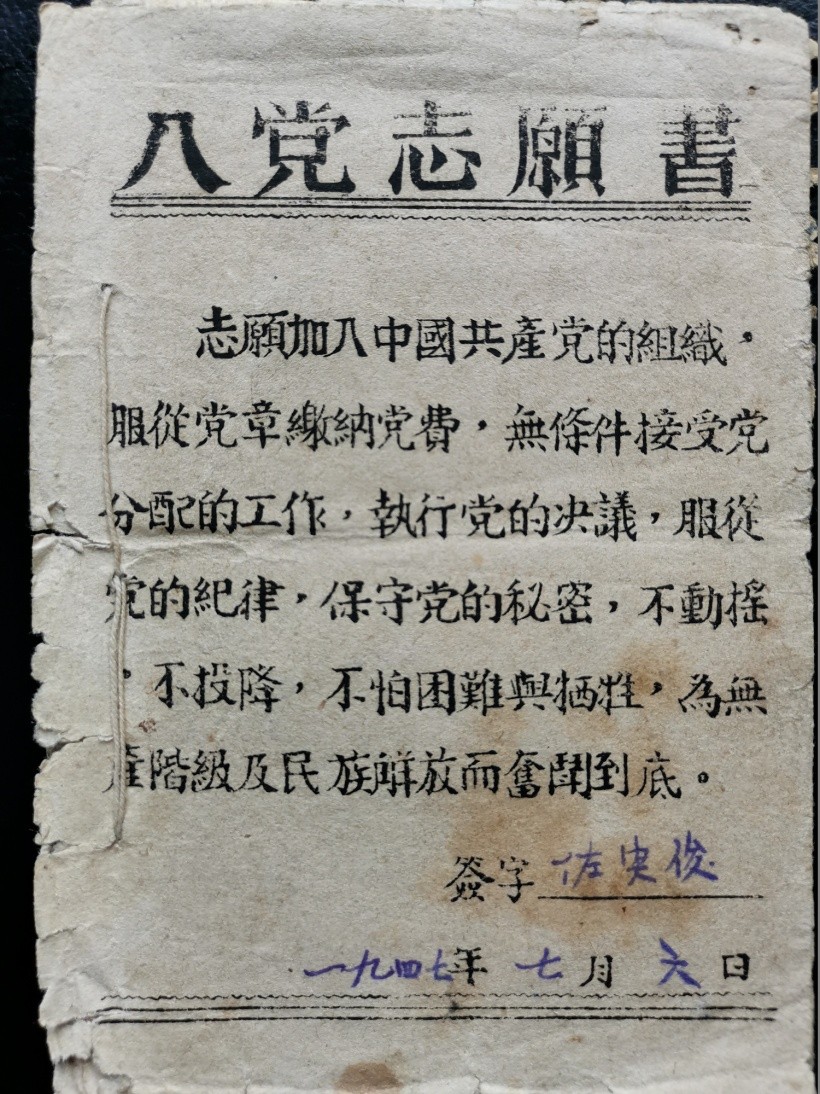 入党志願書
志願加入中國共產党的組織，
服從党章繳納党費，無條件接受党
分配的工作，執行党的决議，服從
党的紀律，保守党的秘密，不動摇
，不投降，不怕困難與牺牲，為無
產階級及民族解放而奮鬪到底。
簽字 佐史俊
一九四七年 七月 六日